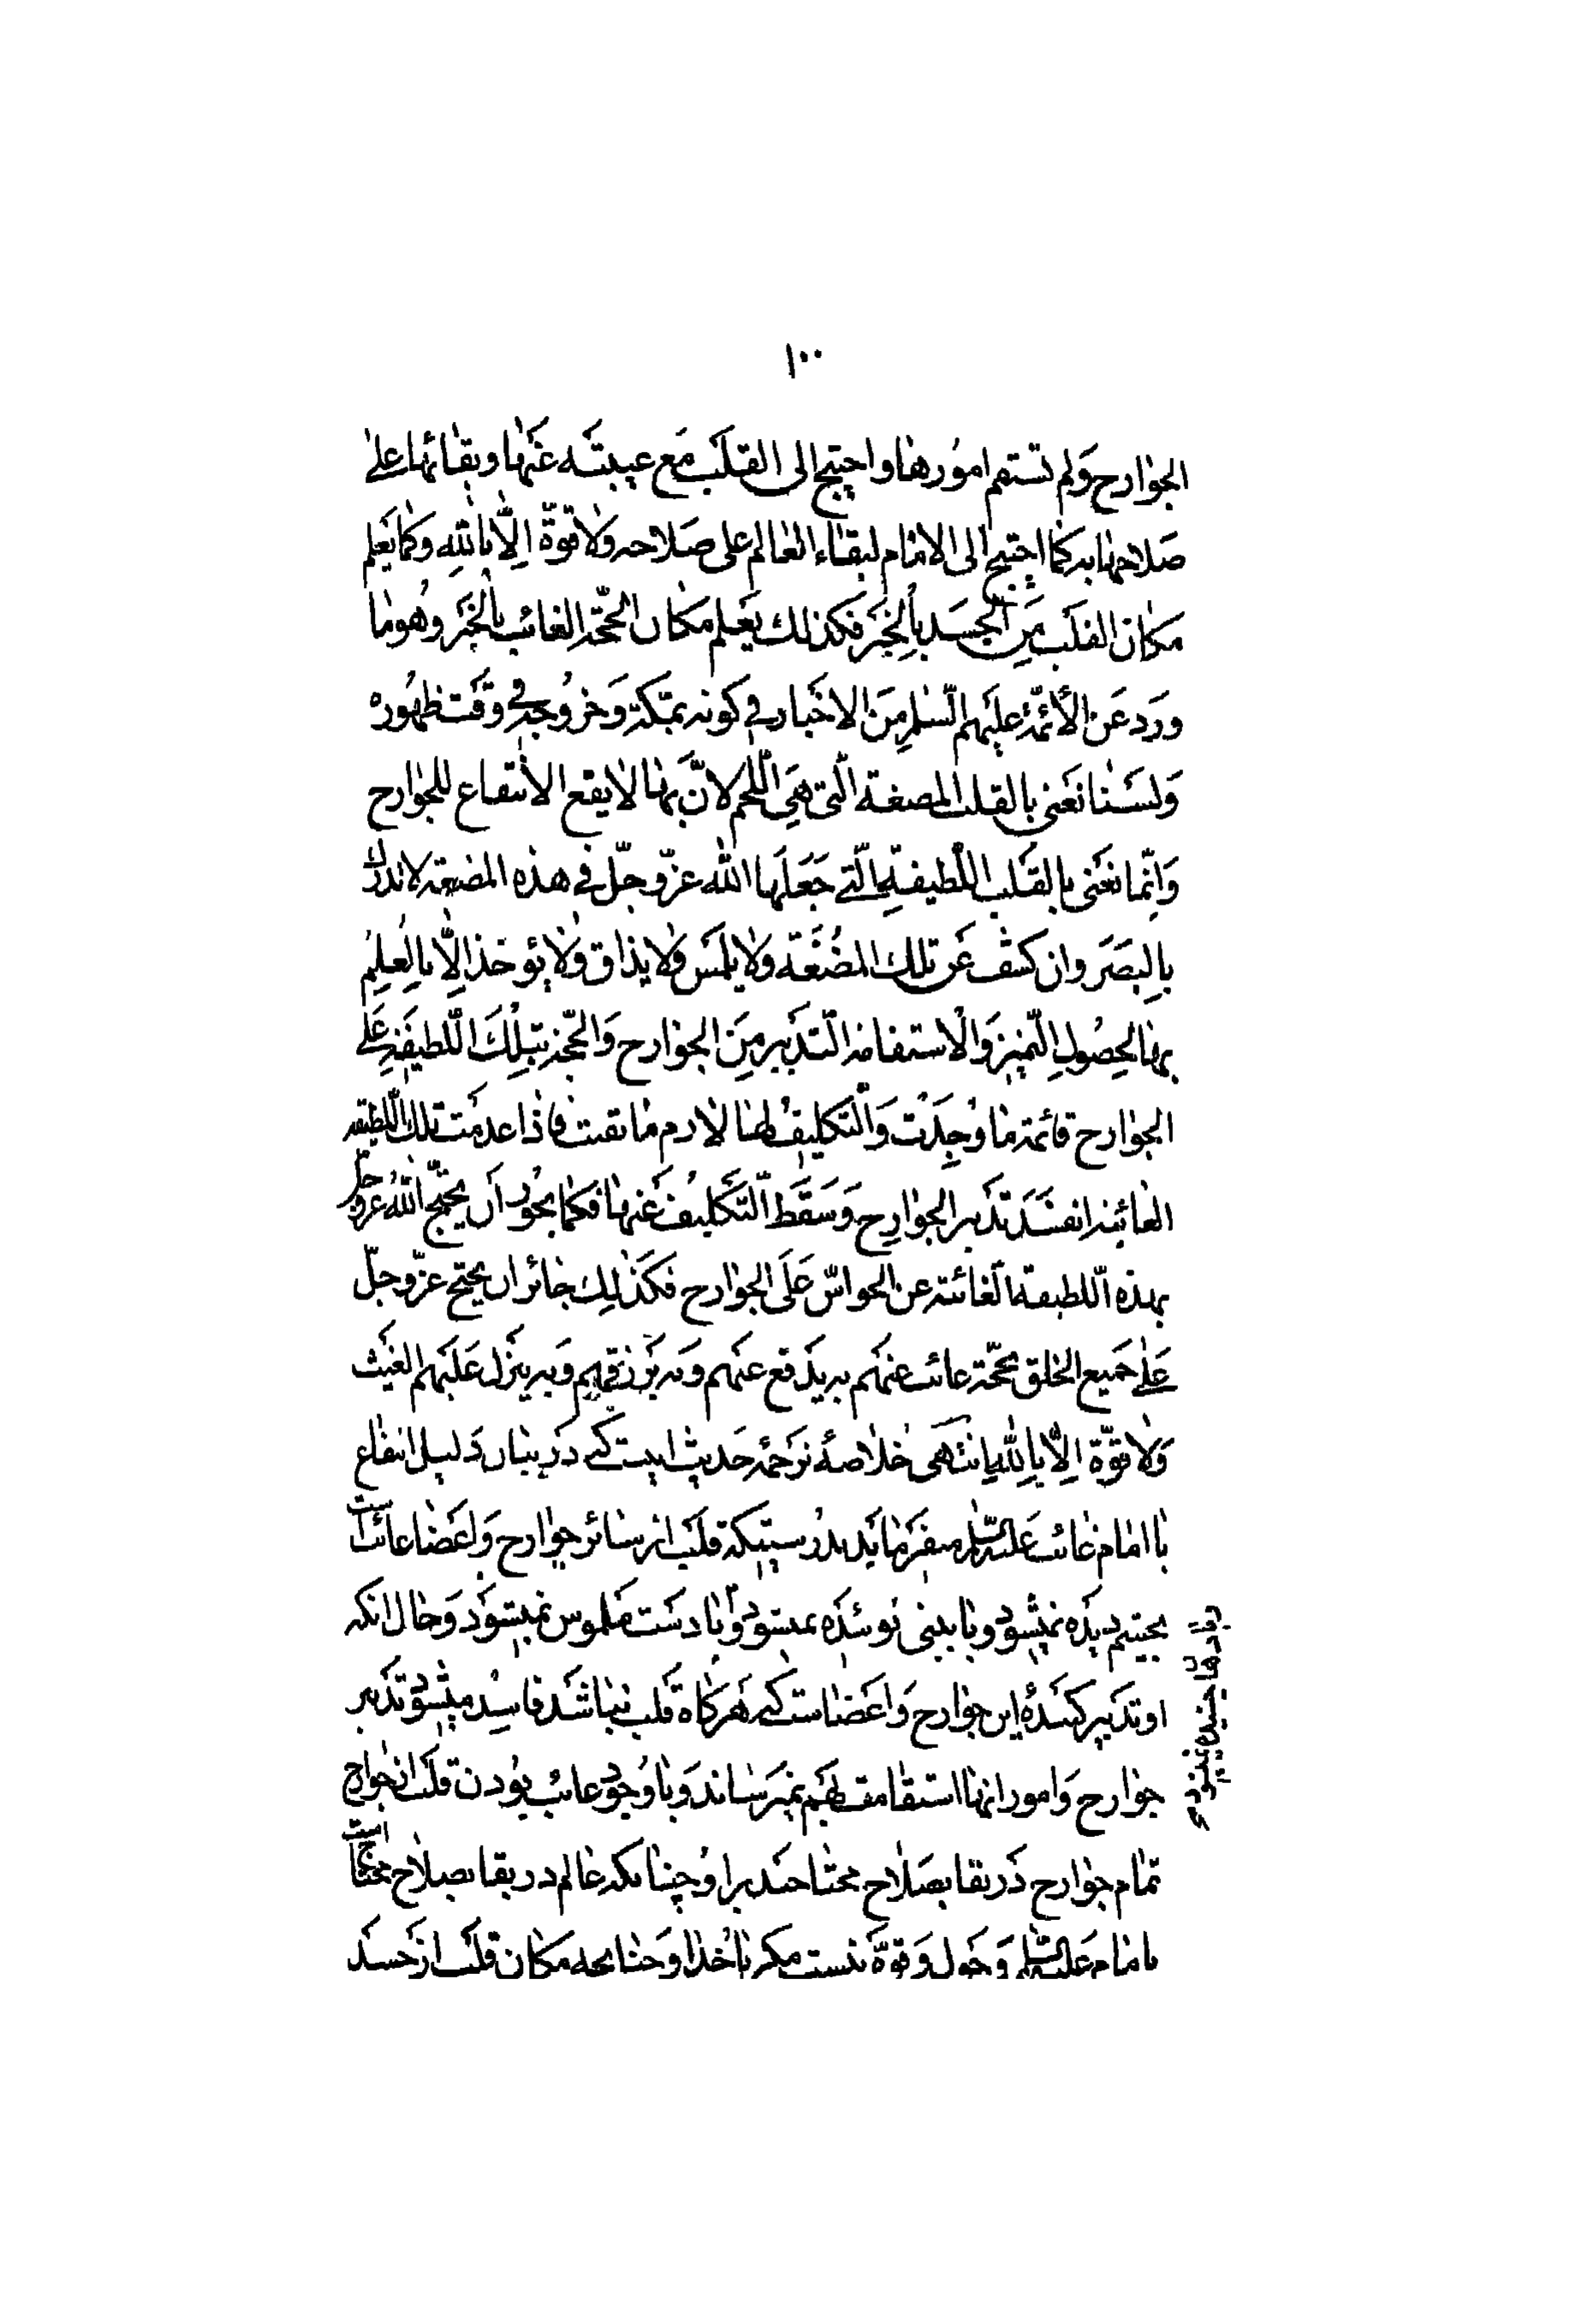 ١٠٠
الجوارح وَلم تستقم امُورها واحتيج الى القلب مَع غيبته عَنها وبقائها عَلىٰ
صَلاحها به كما احتيج الى الامام لبقاء العالم على صَلاحه وَلا قوّة اِلّا بالله وكما يَعلم
مكان القلب مِن الجسَد بالخبَر فكذلك يَعلم مكان الحجّة الغائب بالخبَر وهُو ما
ورَد عَن الأئمّة عليهم السّلام مِنَ الاخبار في كونه بمكّة وَخروُجه في وقت ظهُوره
وَلسَنا نَعنى بالقلب المضغة الّتى هي اللّحم لانّ بها لا يقع الانتفاع للجوارح
وَانّما نعَنى بالقَلب اللّطيفة الّتي جَعَلها الله عزّ وجلّ في هذه المضغة لا تدرك
بالبَصَر وان كشف عَن تلك المضُغَة ولا يلمَس وَلا يذاق وَلا يؤخذ اِلّا بالعِلمُ
بها لحِصُولِ التّميز وَالاستقامة التّدبير مِنَ الجوارح وَالحجّة بتِلكَ اللّطيفة عَلى
الجوارح قائمة ما وُجِدَت وَالتّكليف لها لازم ما بقيت فاذا عدمت تلك اللّطيفه
الغائبه انفسَدَ تدَبير الجوارِح وَسَقَط التّكليف عَنها فكما يجُوز اَن يحتجّ اللهُ عزّ و جلّ
بهذه اللّطيفة الغائبة عن الحواسّ عَلَى الجوارح فكَذلِك جائز ان يحتج عزّ وجلّ
عَلىٰ جَميع الخلق بحجّة غائب عنهُم به يَدفع عنهُم وبه يَرزقهم وَبه ينزل عَليَهم الغيَث
وَلا قوّة اِلّا بالله اِنتهَى خُلاصهٔ ترَجمهٔ حَديث اينست كه دَر بيان دَليل انتفاع
با امام غائب عَليه السّلام ميفرَمايَد بدرُستيكه قلَب از سائر جوارح وَاعضا غائب است
بچشم ديدَه نميشود و با بينى بوئيدَه نميشود وبا دَست مَلموس نميشوَد وَحال انكه
بذائقه چشيده نميشود
او تدَبير كنندهٔ اين جوارح وَاعضاست كه هَركاه قَلب نباشد فاسِد ميشود تدَبير
جوارح وَامور انها استقامت بهَم نميرَساند وَبا وُجود غائب بوُدن قلَب از جوارح
تمام جوارح دَر بقا بصَلاح محتاجند براو چنانكه عالم در بقا بصلاح محتاج است
بامام عَليه السّلام وَحَول وَقوّة نيست مكر با خدا وَچنانچه مكان قلَب از جَسَد